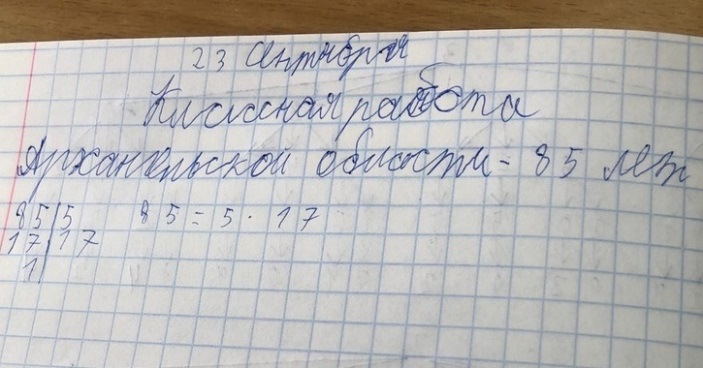 23 сентября
Классная работа
Архангельской области - 85 лет
85|5 85 = 5 · 17
17|17
1|